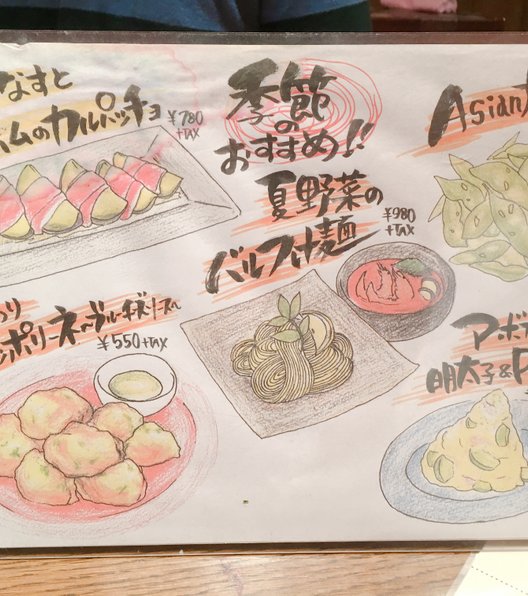 なすと
ハムのカルパッチョ
¥780
+TAX
季節
の
おすすめ!!
夏野菜の
バルつけ麺
¥980
+TAX
Asian
ポリーネ〜ブルーチーズソース〜
¥550+TAX
アボ
明太子&